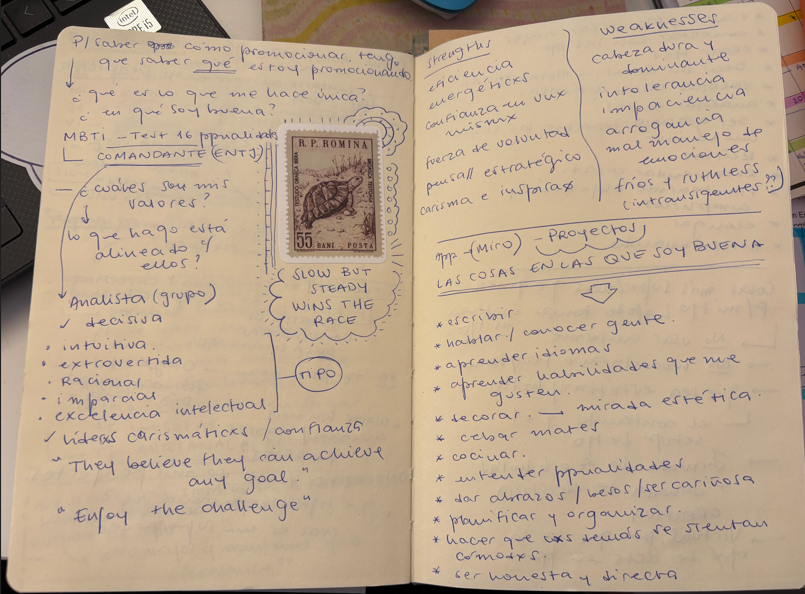 intel
P/saber como promocionar, tengo
que saber qué estoy promocionando
¿qué es lo que me hace única?
¿en qué soy buena?
MBTI - Test 16 ppnalidades
COMANDANTE (ENTJ)
— ¿cuáles son mis
valores?
lo que hago está
alineado c/
ellos?
Analista (grupo)
✓ decisiva
• intuitiva.
• extrovertida
• Racional
• imparcial
• excelencia intelectual
TIPO
✓ líderxs carismáticxs / confianza
"They believe they can achieve
any goal."
"Enjoy the challenge"
R. P. ROMINA
55 BANI - POSTA
SLOW BUT
STEADY
WINS THE
RACE
strengths
eficiencia
energéticxs
confianza en unx
mismx
fuerza de voluntad
pensar/ estratégico
carisma e inspirax
weaknesses
cabeza dura y
dominante
intolerancia
impaciencia
arrogancia
mal manejo de
emociones
fríos y ruthless
(intransigentes??)
App - (Miro) - PROYECTOS
LAS COSAS EN LAS QUE SOY BUENA
* escribir
* hablar / conocer gente.
* aprender idiomas
* aprender habilidades que me
gusten.
* decorar. → mirada estética.
* cebar mates
* cocinar.
* entender ppnalidades
* dar abrazos / besos / ser cariñosa
* planificar y organizar.
* hacer que lxs demás se sientan
cómodxs.
* ser honesta y directa